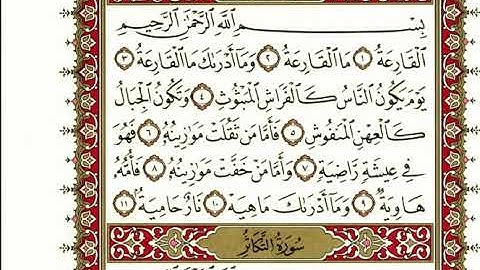 بِسْمِ اللَّهِ الرَّحْمَٰنِ الرَّحِيمِ
الْقَارِعَةُ ١ مَا الْقَارِعَةُ ٢ وَمَا أَدْرَىٰكَ مَا الْقَارِعَةُ ٣
يَوْمَ يَكُونُ النَّاسُ كَالْفَرَاشِ الْمَبْثُوثِ ٤ وَتَكُونُ الْجِبَالُ
كَالْعِهْنِ الْمَنْفُوشِ ٥ فَأَمَّا مَنْ ثَقُلَتْ مَوَٰزِينُهُ ٦ فَهُوَ
فِي عِيشَةٍ رَّاضِيَةٍ ٧ وَأَمَّا مَنْ خَفَّتْ مَوَٰزِينُهُ ٨ فَأُمُّهُ
هَاوِيَةٌ ٩ وَمَا أَدْرَىٰكَ مَا هِيَهْ ١٠ نَارٌ حَامِيَةٌ ١١
سُورَةُ التَّكَاثُرِ